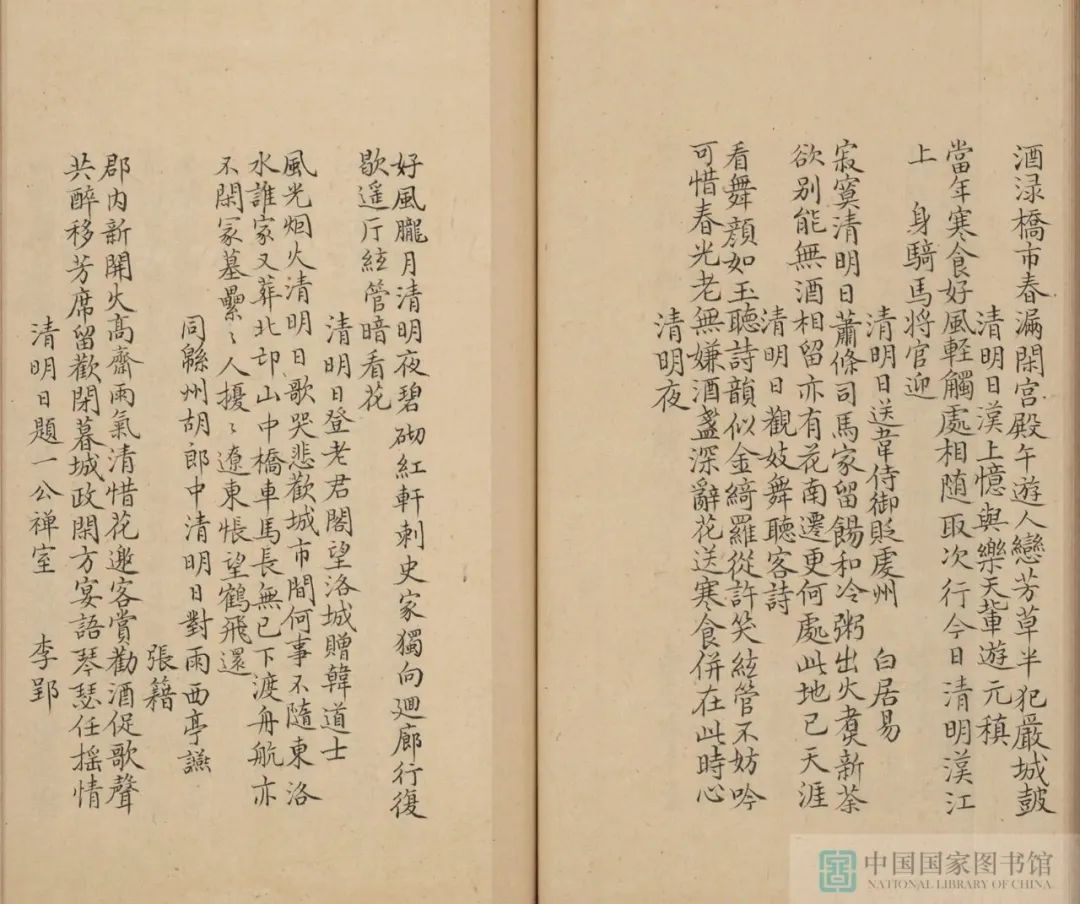 酒渌橋市春漏閑宮殿午遊人戀芳草半犯嚴城皷
清明日漢上憶與樂天軰遊元稹
當年寒食好風輕觸處相随取次行今日清明漢江
上 身騎馬將官迎
清明日送韋侍御貶䖍州 白居易
寂寞清明日蕭條司馬家留餳和冷粥出火煑新茶
欲别能無酒相留亦有花南遷更何處此地已天涯
清明日觀妓舞聽客詩
看舞顔如玉聽詩韻似金綺羅從許笑絃管不妨吟
可惜春光老無嫌酒盞深辭花送寒食併在此時心
清明夜
好風朧月清明夜碧砌紅軒刺史家獨向廻廊行復
歇遥厅絃管暗看花
清明日登老君閣望洛城贈韓道士
風光烟火清明日歌哭悲歡城市間何事不隨東洛
水誰家又葬北邙山中橋車馬長無已下渡舟航亦
不閑冡墓纍〻人擾〻遼東悵望鶴飛還
同緜州胡郎中清明日對雨西亭讌
張籍
郡内新開火髙齋雨氣清惜花邀客賞勸酒促歌聲
共醉移芳席留歡閉暮城政閑方宴語琴瑟任摇情
清明日題一公禅室 李郢
中国国家图书馆
NATIONAL LIBRARY OF CHINA